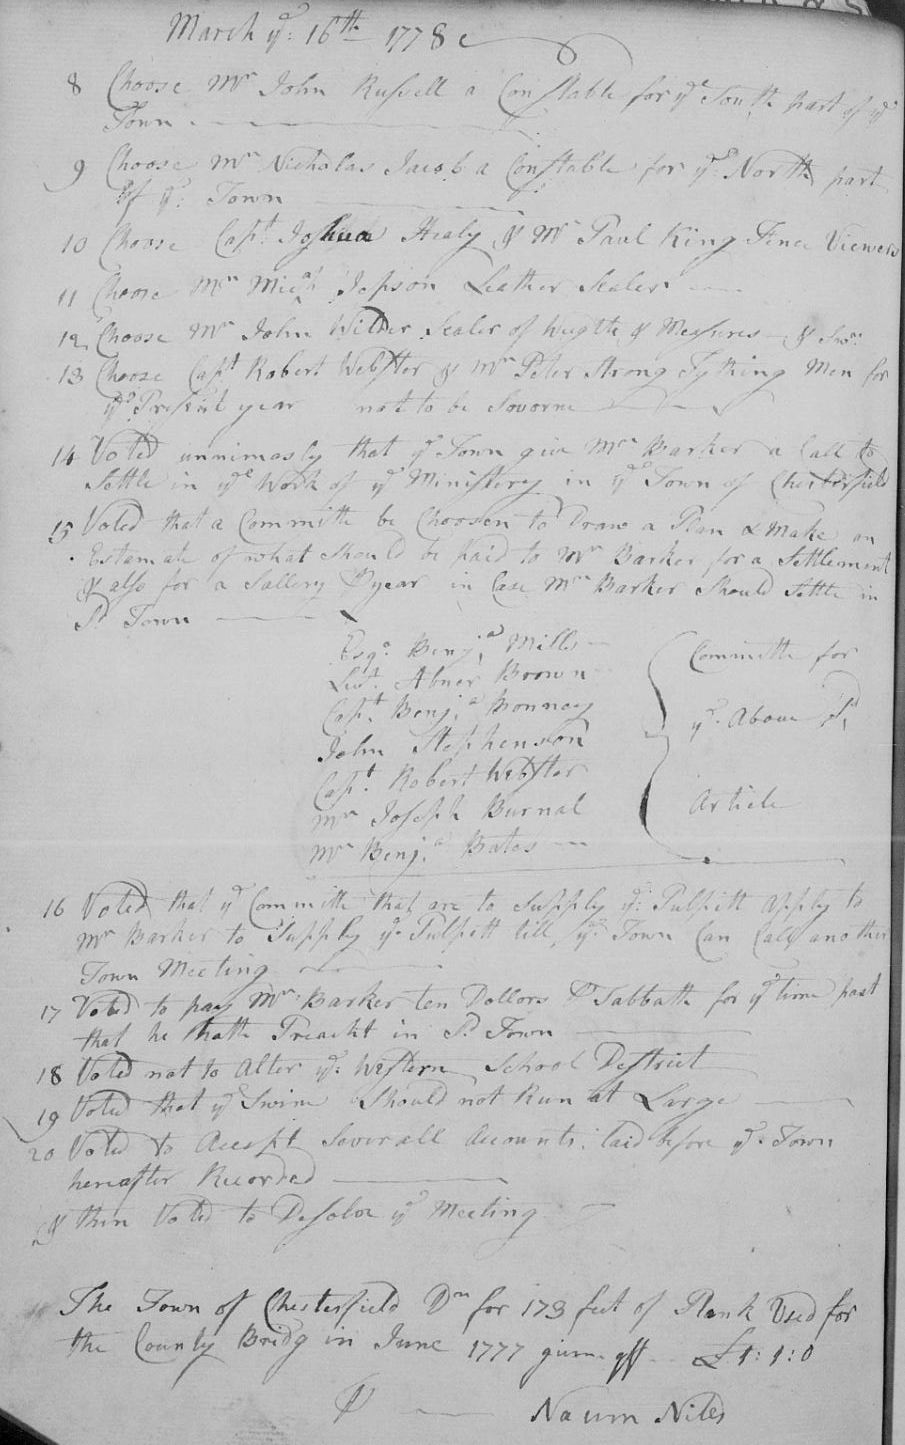 March ye: 16th 1778
8 Choose Mr John Russell a Constable for ye South part of ye
Town
9 Choose Mr Nicholas Jacob a Constable for ye North part
of ye: Town
10 Choose Capt. Joshua Healy & Mr Paul King Fence Viewers
11 Choose Mr Micah Jepson Leather Sealer
12 Choose Mr John Wilder Sealer of Weigth & Messures &
13 Choose Capt Robert Webster & Mr Peter Strong Tything Men for
ye Present year not to be Sworne
14 Voted unnimosly that ye Town give Mr Barker a Call to
Settle in ye Work of ye Ministery in ye Town of Chesterfield
15 Voted that a Committe be Choosen to Draw a Plan & Make an
Estemate of what Should be Paid to Mr Barker for a Settlement
& also for a Sallery Pr year in Case Mr Barker Should Settle in
Sd. Town
Esqr. Benja Mills
Liut. Abner Brown
Capt. Benja Bonney
John Stephenson
Capt. Robert Webster
Mr Joseph Burnal
Mr Benja Bates
Committe for
ye. Above Sd
Article
16 Voted that ye Committe that are to Supply ye: Pulpitt apply to
Mr Barker to Supply ye Pulpitt till ye Town Can Call another
Town Meeting
17 Voted to pay Mr Barker ten Dollors Pr Sabbath for ye time past
that he hath Preacht in Sd. Town
18 Voted not to Alter ye. Western School Destrict
19 Voted that ye Swine Should not Run at Large
20 Voted to Accept Soverall Accounts laid before ye Town
hereafter Recorded
& then Voted to Desolve ye Meeting
The Town of Chesterfield Dr for 173 feet of Plank Used for
the County Bridg in June 1777 £1:1:0
Pr Naum Niles